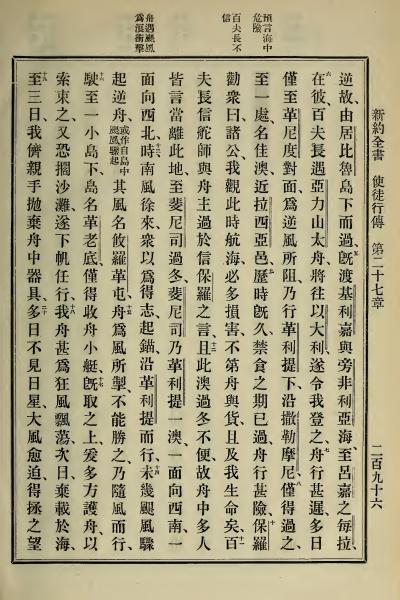 新約全書 使徒行傳 第二十七章 二百九十六
預言海中
危險
百夫長不
信
舟遇颶風
爲浪衝擊
逆故由居比魯島下而過五旣渡基利嘉與旁非利亞海至呂嘉之每拉、
六在彼百夫長遇亞力山太舟將往以大利遂令我登之七舟行甚遲多日
僅至革尼度對面爲逆風所阻乃行革利提下沿撒勒摩尼八僅得過之、
至一處名佳澳近拉西亞邑九歷時旣久禁食之期已過舟行甚險保羅
十勸衆曰諸公我觀此時航海必多損害不第舟與貨且及我生命矣十一百
夫長信舵師與舟主過於信保羅之言十二且此澳過冬不便故舟中多人
皆言當離此地至斐尼司過冬斐尼司乃革利提一澳一面向西南一
面向西北十三時南風徐來衆以爲得志起錨沿革利提而行十四未幾颶風驟
起逆舟或作自島中颶風驟起其風名攸羅革屯十五舟爲風所掣不能勝之乃隨風而行、
十六駛至一小島下島名革老底僅得收舟小艇十七旣取之上爰多方護舟以
索束之又恐擱沙灘遂下帆任行十八我舟甚爲狂風飄蕩次日棄載於海、
十九至三日我儕親手拋棄舟中器具二十多日不見日星大風愈迫得拯之望